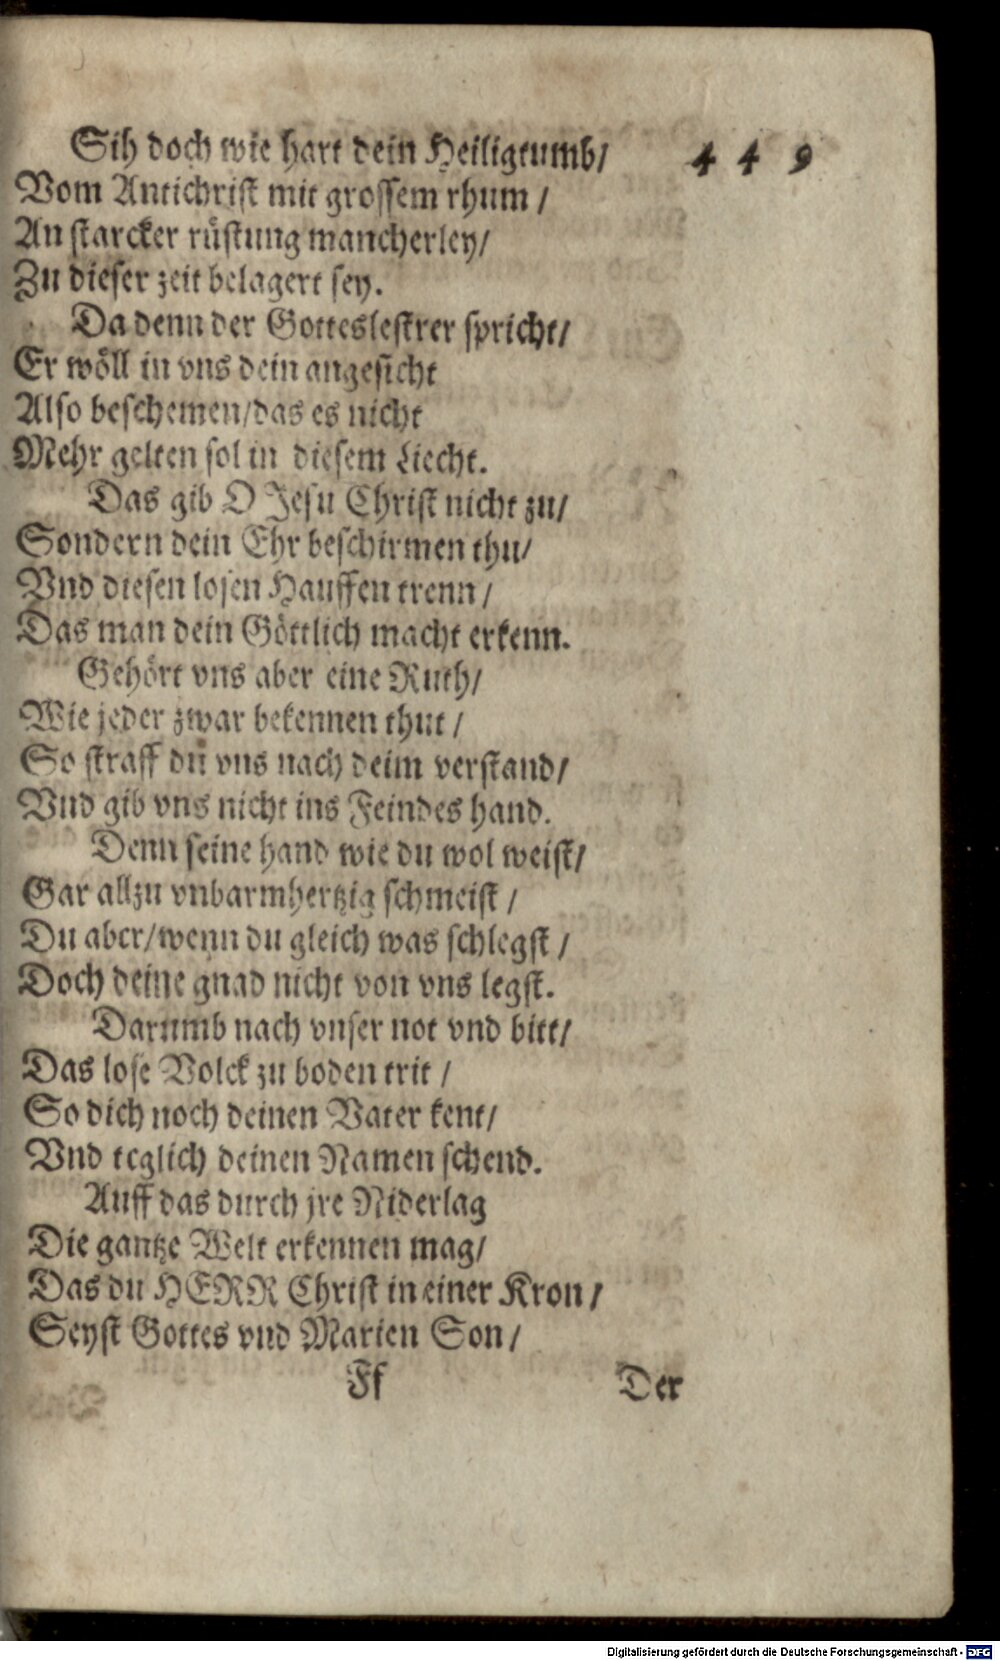 Sih doch wie hart dein Heiligtumb/ 449
Vom Antichrist mit grossem rhum /
An starcker rüstung mancherley/
Zu dieser zeit belagert sey.
Da denn der Gotteslestrer spricht/
Er wöll in vns dein angesicht
Also beschemen/das es nicht
Mehr gelten sol in diesem Liecht.
Das gib O Jesu Christ nicht zu/
Sondern dein Ehr beschirmen thu/
Vnd diesen losen Hauffen trenn/
Das man dein Göttlich macht erkenn.
Gehört vns aber eine Ruth/
Wie jeder zwar bekennen thut /
So straff du vns nach deim verstand/
Vnd gib vns nicht ins Feindes hand.
Denn seine hand wie du wol weist/
Gar allzu vnbarmhertzig schmeist /
Du aber/wenn du gleich was schlegst /
Doch deine gnad nicht von vns legst.
Darumb nach vnser not vnd bitt/
Das lose Volck zu boden trit /
So dich noch deinen Vater kent/
Vnd teglich deinen Namen schend.
Auff das durch jre Niderlag
Die gantze Welt erkennen mag/
Das du HERR Christ in einer Kron /
Seyst Gottes vnd Marien Son /
Ff Der
Digitalisierung gefördert durch die Deutsche Forschungsgemeinschaft - DFG